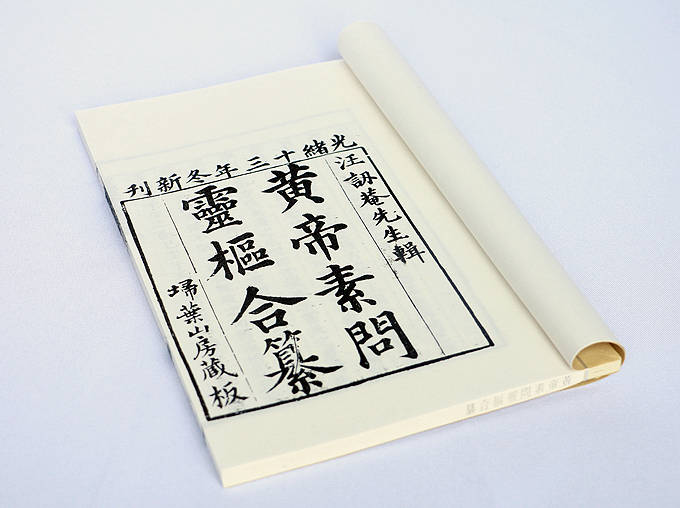 光緒十三年冬新刊
汪訒菴先生輯
黃帝素問
靈樞合纂
埽葉山房藏板
黃帝素問靈樞合纂